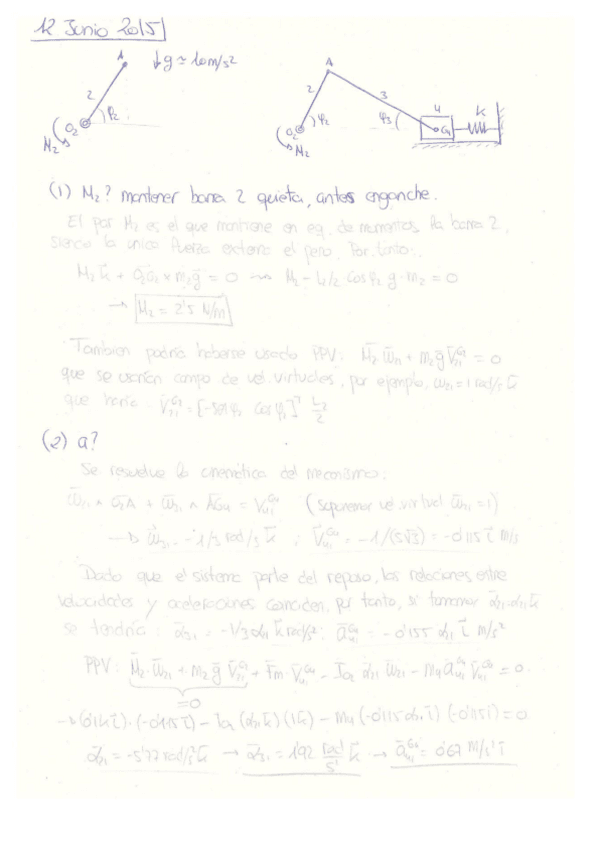 12 Junio 2015
A
↓g ≃ 10 m/s²
2
O₂
φ₂
M₂
A
2
3
4
k
φ₂
φ₃
O₂
G₄
M₂
(1) M₂? mantener barra 2 quieta, antes enganche.
El par M₂ es el que mantiene en eq. de momentos la barra 2,
siendo la unica fuerza externa el peso. Por tanto:
M₂ k̄ + O₂G₂ × m₂ḡ = 0 → M₂ - L₂/2 cos φ₂ g · m₂ = 0
→ M₂ = 2'5 N/m
Tambien podria haberse usado PPV: M̄₂ ω̄₂₁ + m₂ḡ V̄₂₁^G₂ = 0
que se usarian campo de vel. virtuales, por ejemplo, ω₂₁ = 1 rad/s k̄
que haria V̄₂₁^G₂ = [-sen φ₂ cos φ₂]ᵀ L₂/2
(2) a?
Se resuelve la cinemática del mecanismo:
ω̄₂₁ ∧ O₂A + ω̄₃₁ ∧ AG₄ = V̄₄₁^G₄ (suponemos vel. virtual ω̄₂₁ = 1)
→ ω̄₃₁ = -1/3 rad/s k̄ ; V̄₄₁^G₄ = -1/(5√3) = -0'115 ī m/s
Dado que el sistema parte del reposo, las relaciones entre
velocidades y aceleraciones coinciden, por tanto, si tomamos ᾱ₂₁ = α₂₁ k̄
se tendria: ᾱ₃₁ = -1/3 α₂₁ k̄ rad/s²; ā₄₁^G₄ = -0'155 α₂₁ ī m/s²
PPV: M̄₂·ω̄₂₁ + m₂ḡ V̄₂₁^G₂ + F̄m·V̄₄₁^G₄ - I₀₂ ᾱ₂₁ ω̄₂₁ - m₄ ā₄₁^G₄ V̄₄₁^G₄ = 0
=0
→ (0'1k ī)·(-0'115 ī) - I₀₂ (α₂₁ k̄)(1 k̄) - m₄ (-0'115 α₂₁ ī)(-0'115 ī) = 0
ᾱ₂₁ = -5'77 rad/s² k̄ → ᾱ₃₁ = 1'92 rad/s² k̄ → ā₄₁^G₄ = 0'67 m/s² ī